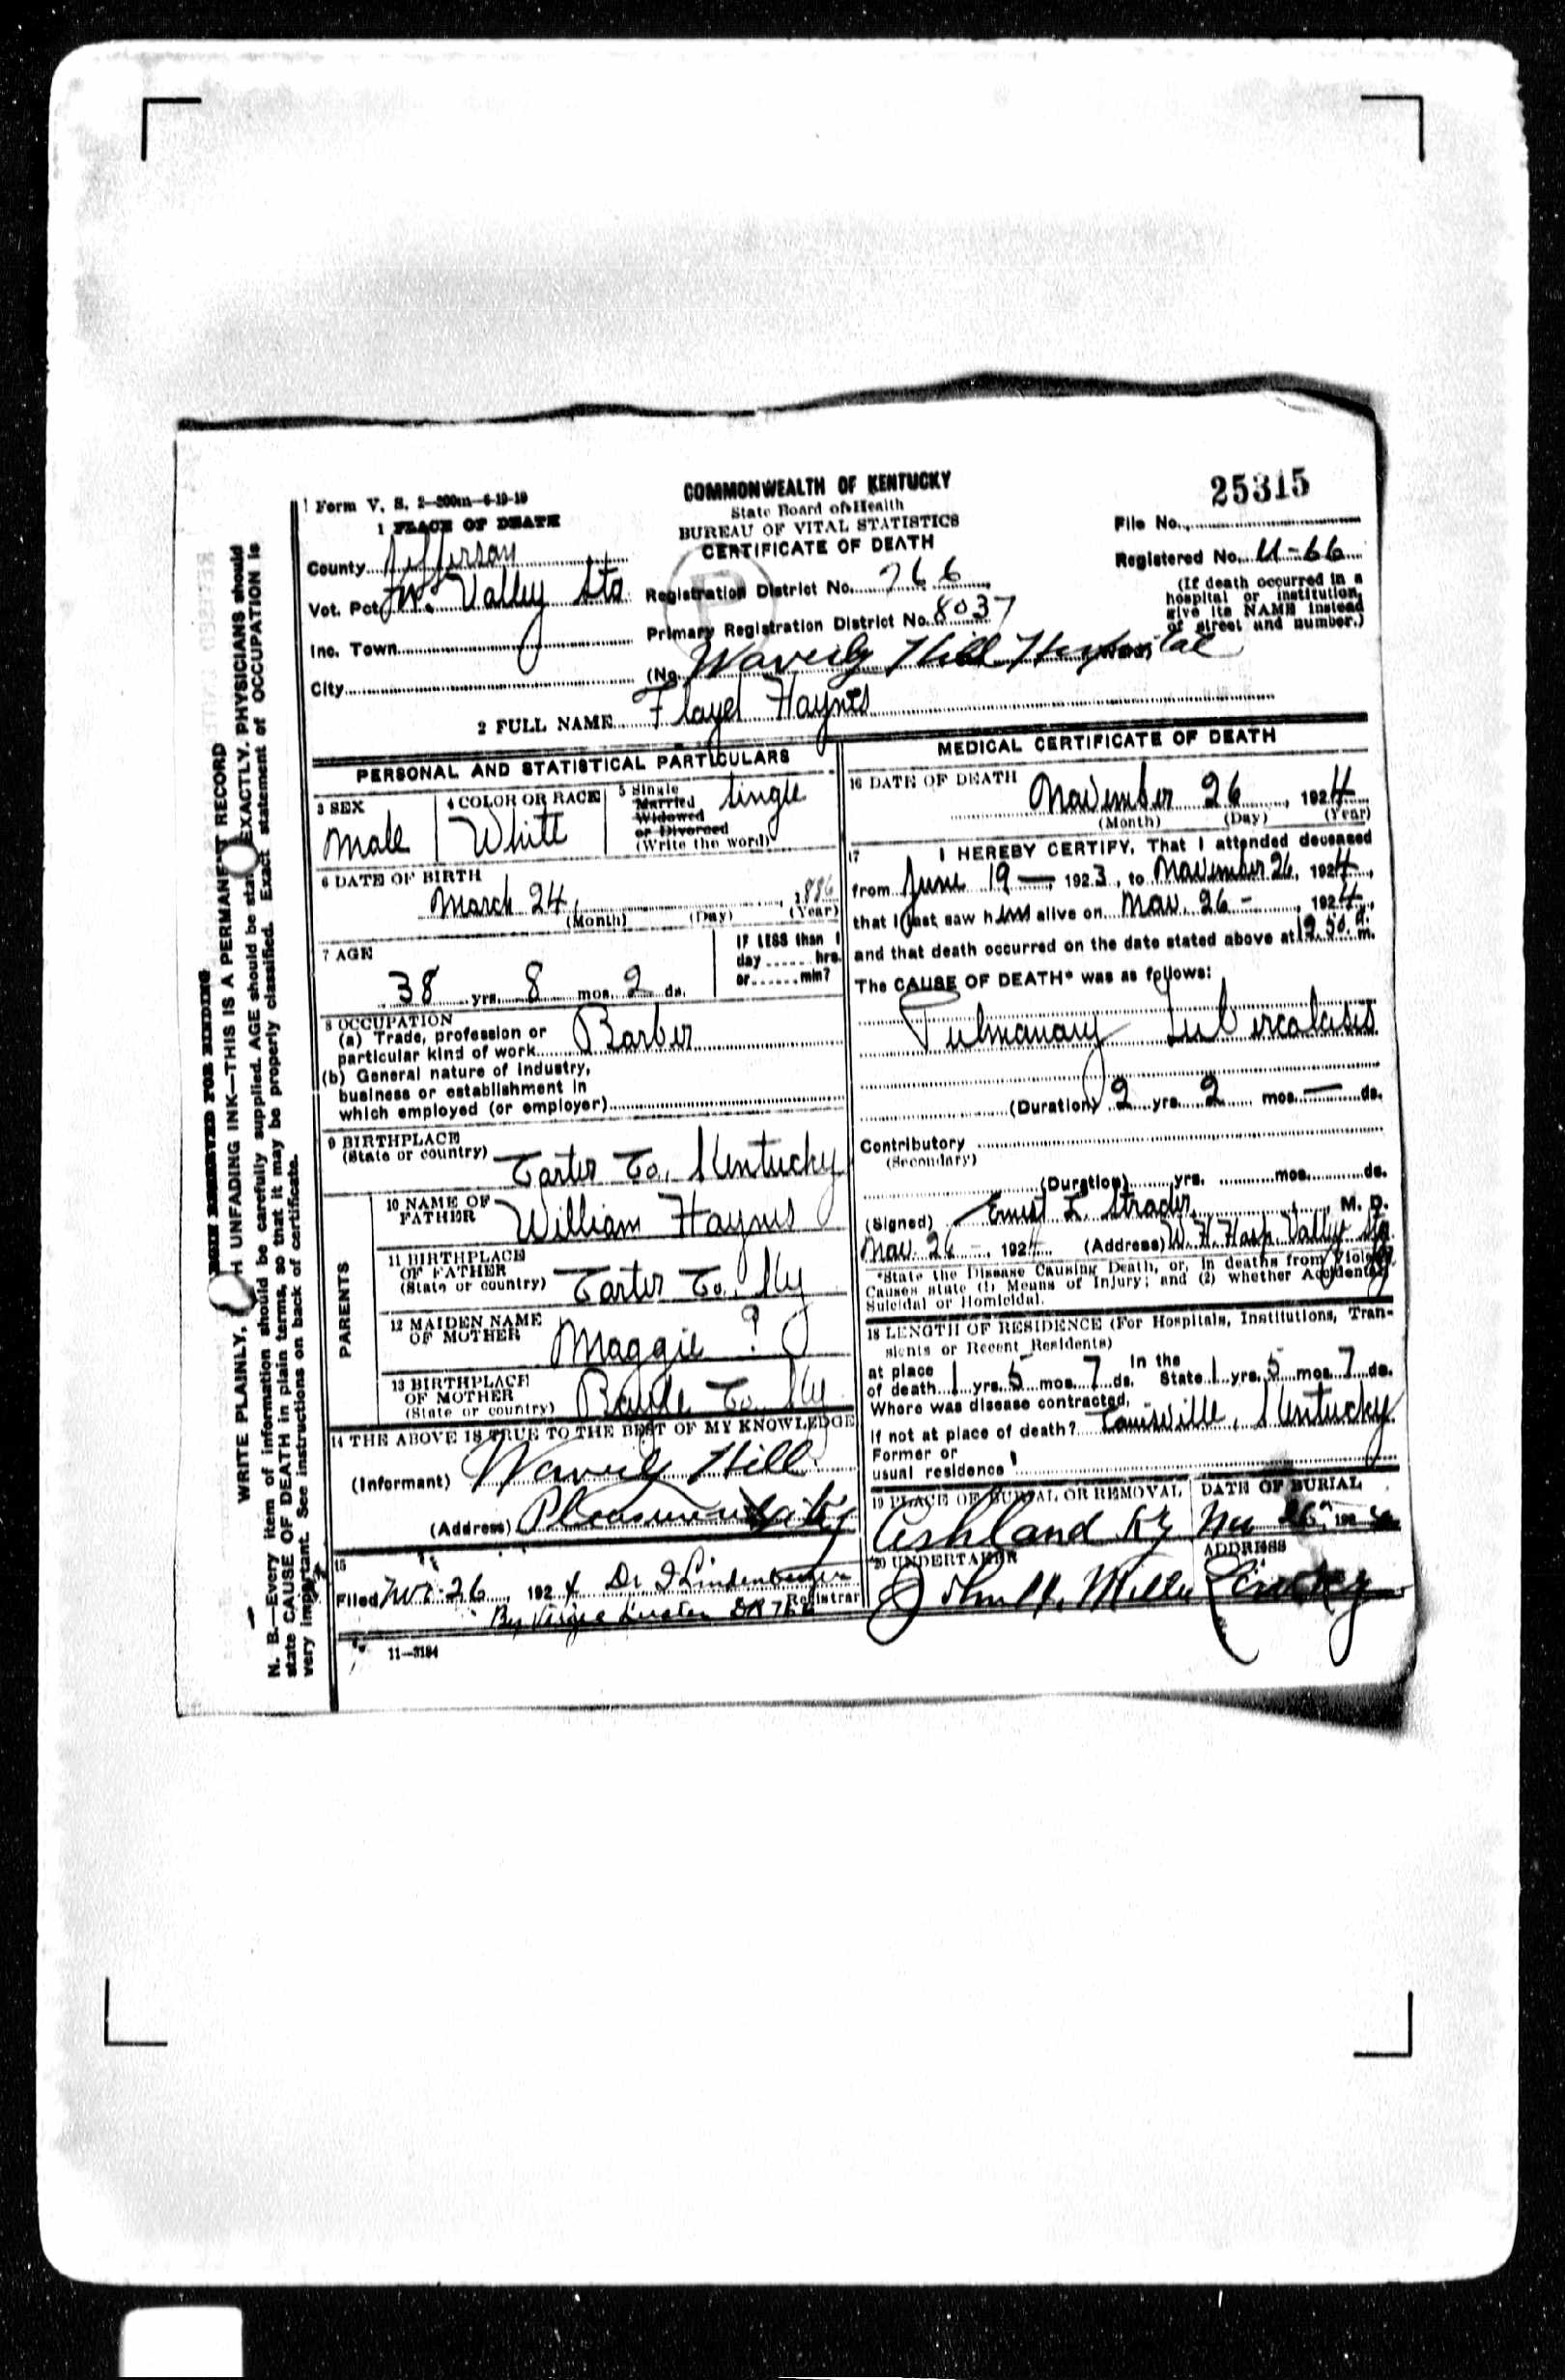 Form V. S. 2—200m—6-19-19
COMMONWEALTH OF KENTUCKY
State Board of Health
BUREAU OF VITAL STATISTICS
CERTIFICATE OF DEATH
25315
File No.
Registered No. U-66
(If death occurred in a hospital or institution, give its NAME instead of street and number.)
1 PLACE OF DEATH
County Jefferson
Vot. Pct. Valley Sta
Registration District No. 766
Inc. Town
Primary Registration District No. 8037
City
(No. Waverly Hill Hospital
2 FULL NAME Floyd Haynes
PERSONAL AND STATISTICAL PARTICULARS
3 SEX
Male
4 COLOR OR RACE
White
5 Single
Married
Widowed
or Divorced
(Write the word)
Single
6 DATE OF BIRTH
March 24, 1886
(Month) (Day) (Year)
7 AGE
38 yrs. 8 mos. 2 ds.
IF LESS than 1
day ...... hrs.
or ...... min?
8 OCCUPATION
(a) Trade, profession or
particular kind of work Barber
(b) General nature of industry,
business or establishment in
which employed (or employer)
9 BIRTHPLACE
(State or country) Carter Co. Kentucky
PARENTS
10 NAME OF
FATHER William Haynes
11 BIRTHPLACE
OF FATHER
(State or country) Carter Co. Ky
12 MAIDEN NAME
OF MOTHER Maggie ?
13 BIRTHPLACE
OF MOTHER
(State or country) Co. Ky
14 THE ABOVE IS TRUE TO THE BEST OF MY KNOWLEDGE
(Informant) Waverly Hill
(Address)
15
Filed Nov. 26, 1924 Dr I Lindenberger
Registrar
By DR 766
11—3184
MEDICAL CERTIFICATE OF DEATH
16 DATE OF DEATH
November 26, 1924
(Month) (Day) (Year)
17 I HEREBY CERTIFY, That I attended deceased
from June 19 —, 1923, to November 26, 1924,
that I last saw him alive on Nov. 26 -, 1924,
and that death occurred on the date stated above at 12.50 a. m.
The CAUSE OF DEATH* was as follows:
Pulmonary Tuberculosis
(Duration) 2 yrs. 2 mos. — ds.
Contributory
(Secondary)
(Duration) yrs. mos. ds.
(Signed) Ernest L. Strader, M. D.
Nov. 26 -, 1924 (Address) W. H. Hosp. Valley Sta
*State the Disease Causing Death, or, in deaths from Violent
Causes state (1) Means of Injury; and (2) whether Accidental,
Suicidal or Homicidal.
18 LENGTH OF RESIDENCE (For Hospitals, Institutions, Tran-
sients or Recent Residents)
at place
of death 1 yrs. 5 mos. 7 ds. In the State 1 yrs. 5 mos. 7 ds.
Where was disease contracted,
If not at place of death? Louisville, Kentucky
Former or
usual residence
19 PLACE OF BURIAL OR REMOVAL
Ashland Ky
DATE OF BURIAL
Nov 26, 1924
20 UNDERTAKER
John H. Miller
ADDRESS
MARGIN RESERVED FOR BINDING
WRITE PLAINLY, WITH UNFADING INK—THIS IS A PERMANENT RECORD
N. B.—Every item of information should be carefully supplied. AGE should be stated EXACTLY. PHYSICIANS should
state CAUSE OF DEATH in plain terms, so that it may be properly classified. Exact statement of OCCUPATION is
very important. See instructions on back of certificate.